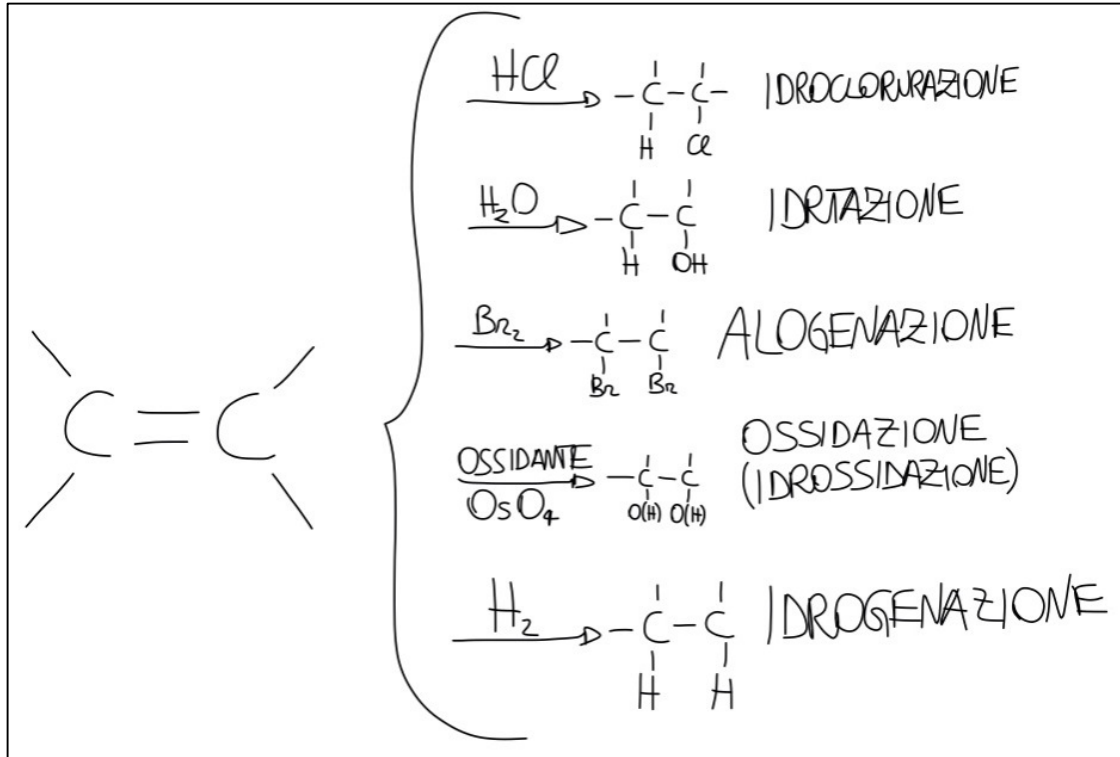 HCl
-C-C-
H Cl
IDROCLORURAZIONE
H₂O
-C-C
H OH
IDRTAZIONE
Br₂
-C-C
Br Br
ALOGENAZIONE
C=C
OSSIDANTE
OsO₄
-C-C
O(H) O(H)
OSSIDAZIONE
(IDROSSIDAZIONE)
H₂
-C-C
H H
IDROGENAZIONE